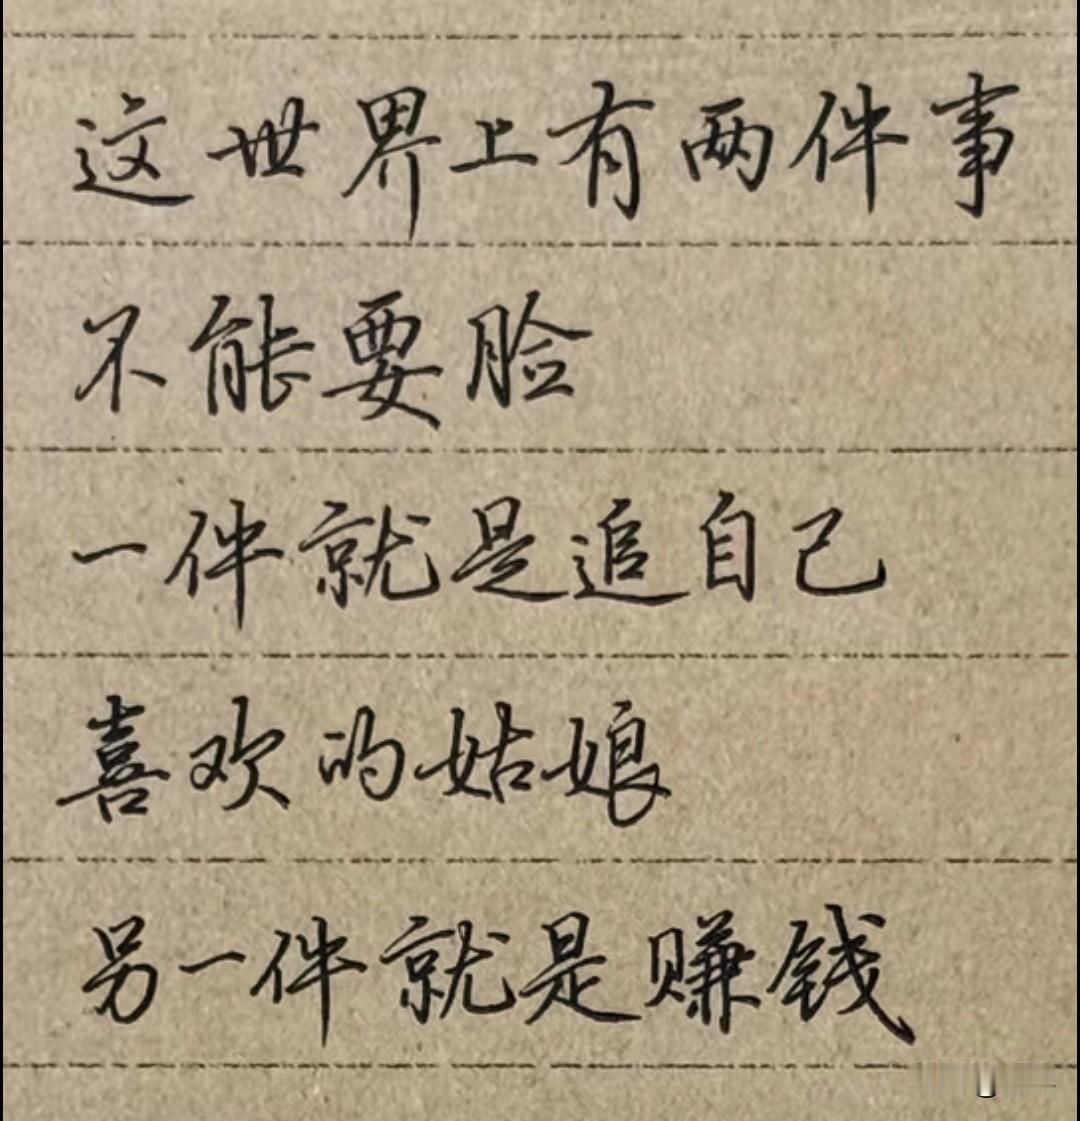 这世界上有两件事
不能要脸
一件就是追自己
喜欢的姑娘
另一件就是赚钱